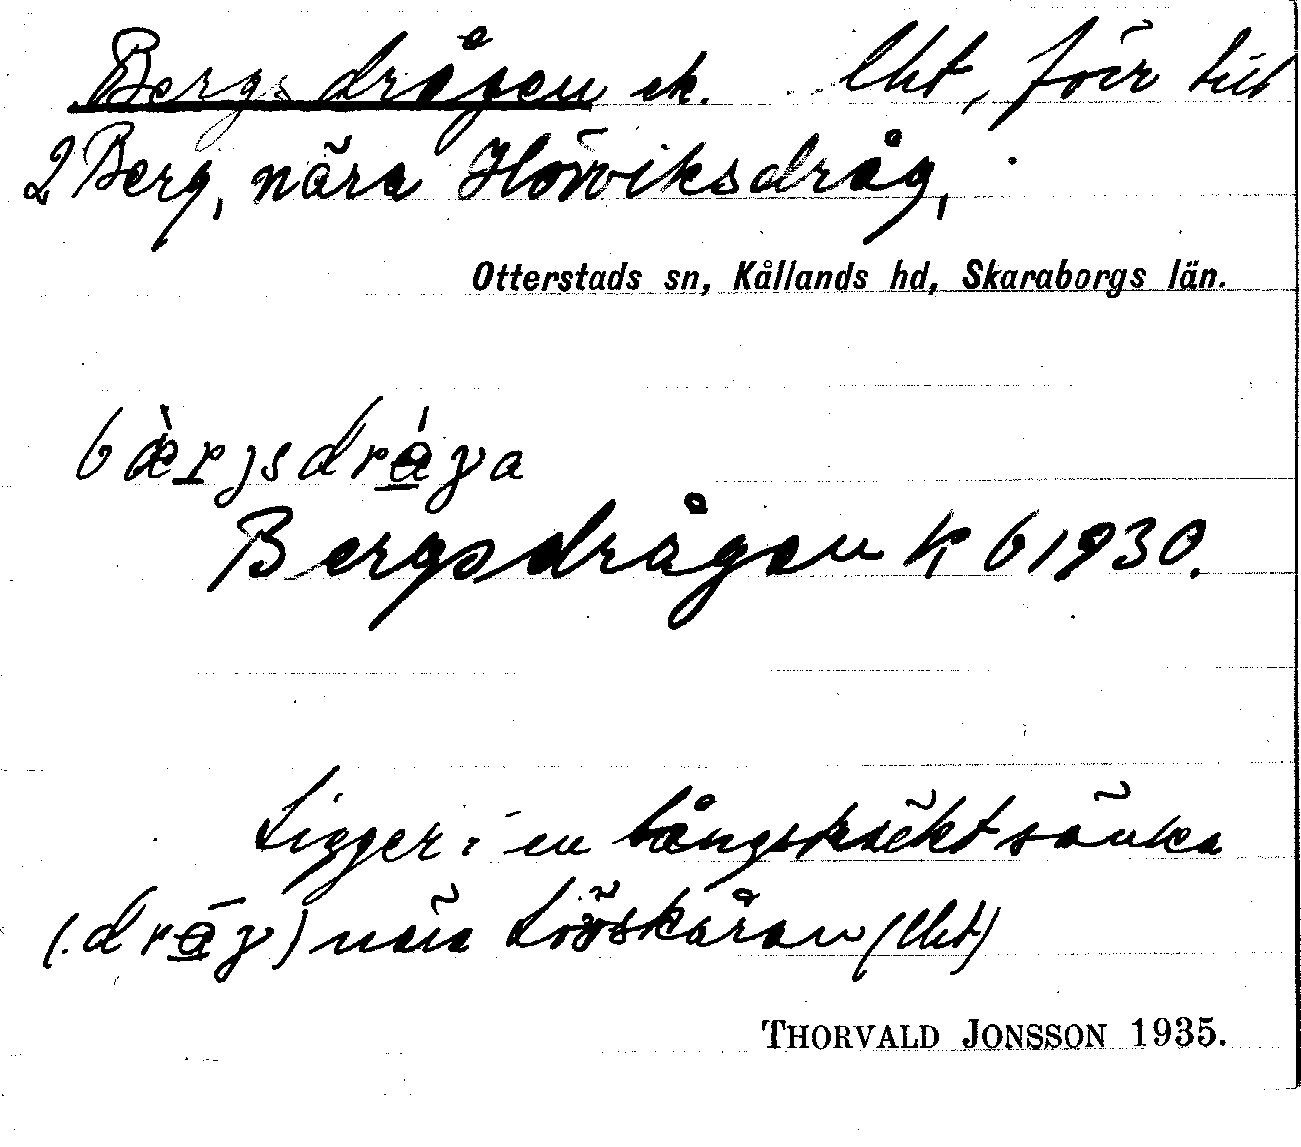 Bergsdrågen ek. lht, förr till
2 Berg, nära Hörviksdråg,
Otterstads sn, Kållands hd, Skaraborgs län.
bæ̀rjsdrǻγa
Bergsdrågen K 6 1930.
Ligger i en långsträckt sänka
(: drāγ) nära Lövskåran (lht)
THORVALD JONSSON 1935.